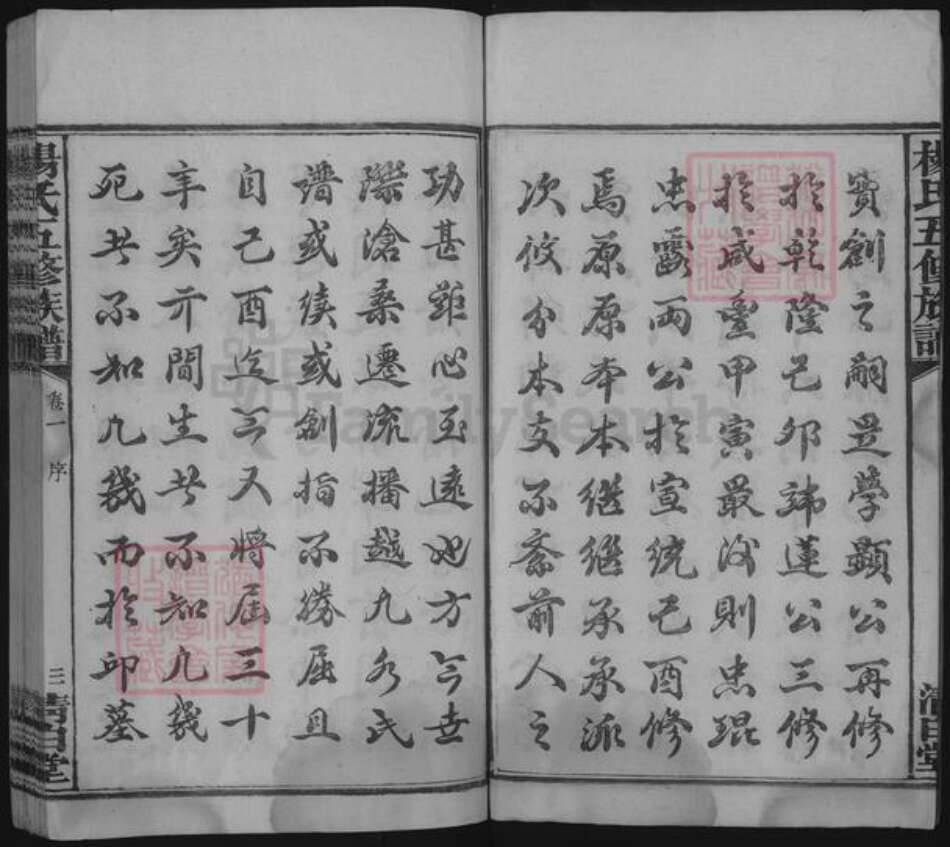 楊氏五修族譜
清白堂
寶創之嗣是學顯公再修
於乾隆己卯諱蓮公三修
於咸豐甲寅最後則忠琨
忠霨兩公於宣統己酉修
焉原原本本繼繼承承派
次攸分本支不紊前人之
功甚鉅心至遠也方今世
際滄桑遷流播越九州民
譜或續或創指不勝屈且
自己酉迄今又將屆三十
年矣亓間生者不知凡幾
死者不知凡幾而於邱墓
楊氏五修族譜
卷一
序
三
清白堂
FamilySearch